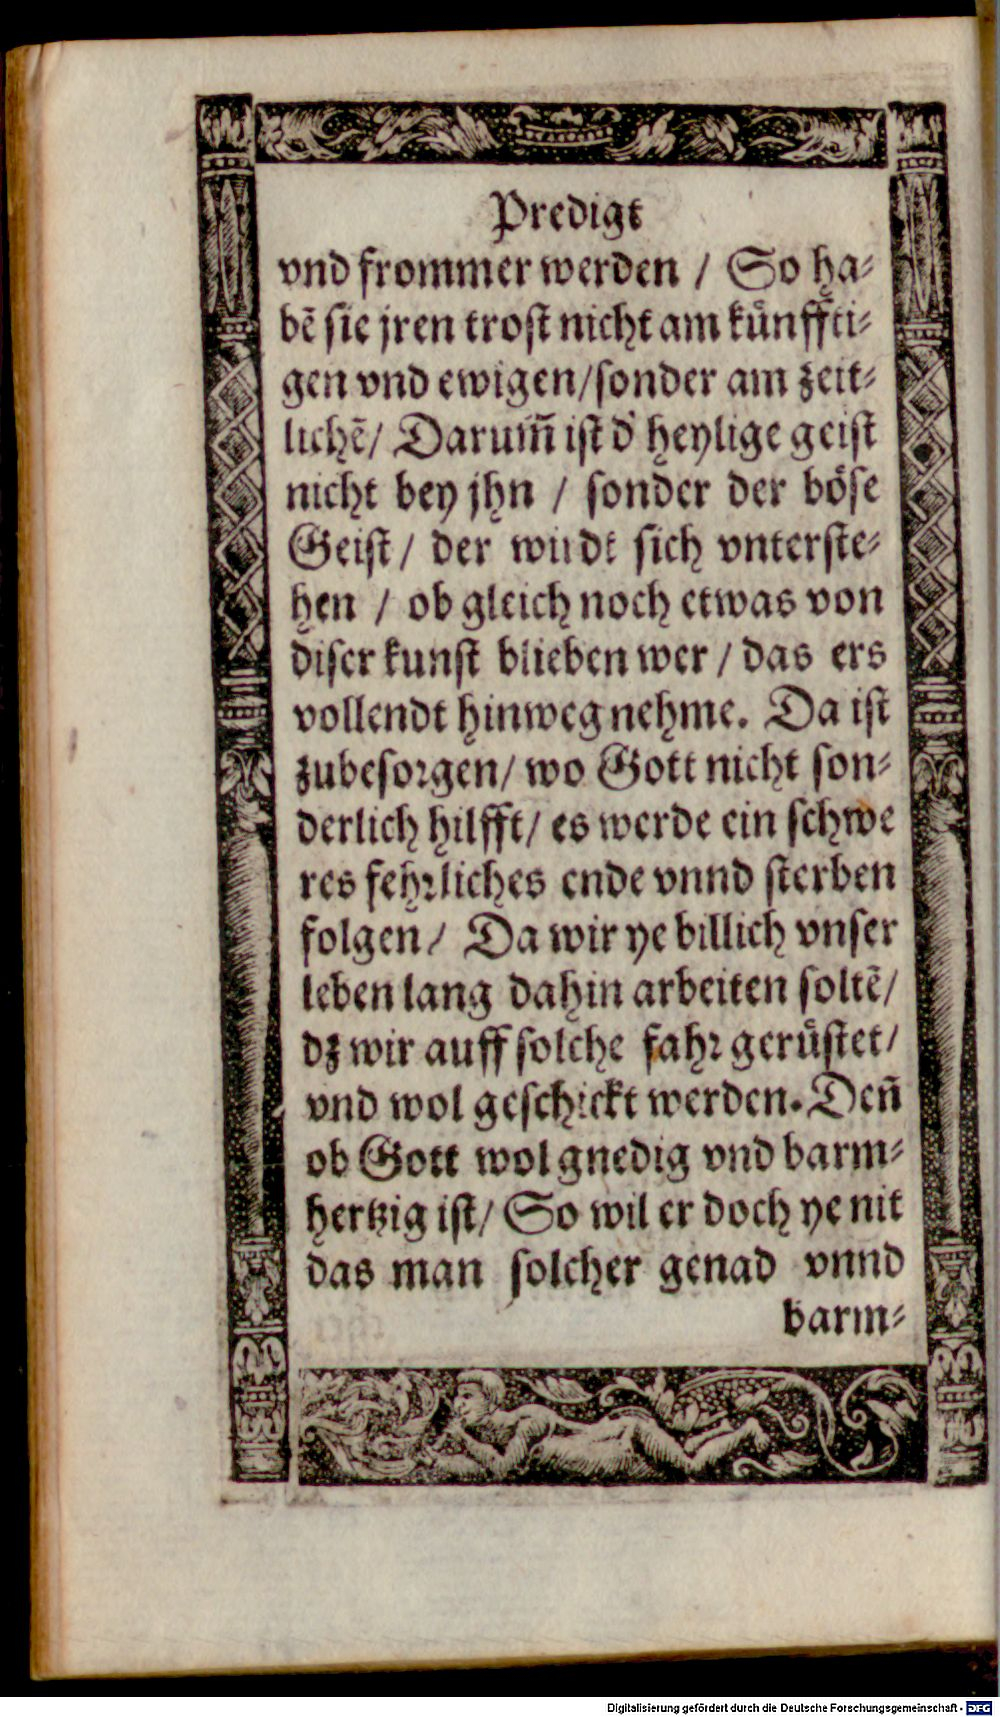 Predigt
vnd frommer werden / So ha⸗
bẽ sie jren trost nicht am kuͤnffti⸗
gen vnd ewigen/sonder am zeit⸗
lichẽ/ Darum̃ ist d' heylige geist
nicht bey jhn / sonder der boͤse
Geist/ der wirdt sich vnterste⸗
hen / ob gleich noch etwas von
diser kunst blieben wer / das ers
vollendt hinweg nehme. Da ist
zubesorgen/ wo Gott nicht son⸗
derlich hilfft/ es werde ein schwe
res fehrliches ende vnnd sterben
folgen/ Da wir ye billich vnser
leben lang dahin arbeiten soltẽ/
dz wir auff solche fahr geruͤstet/
vnd wol geschickt werden. Den̄
ob Gott wol gnedig vnd barm⸗
hertzig ist/ So wil er doch ye nit
das man solcher genad vnnd
barm⸗
Digitalisierung gefördert durch die Deutsche Forschungsgemeinschaft - DFG